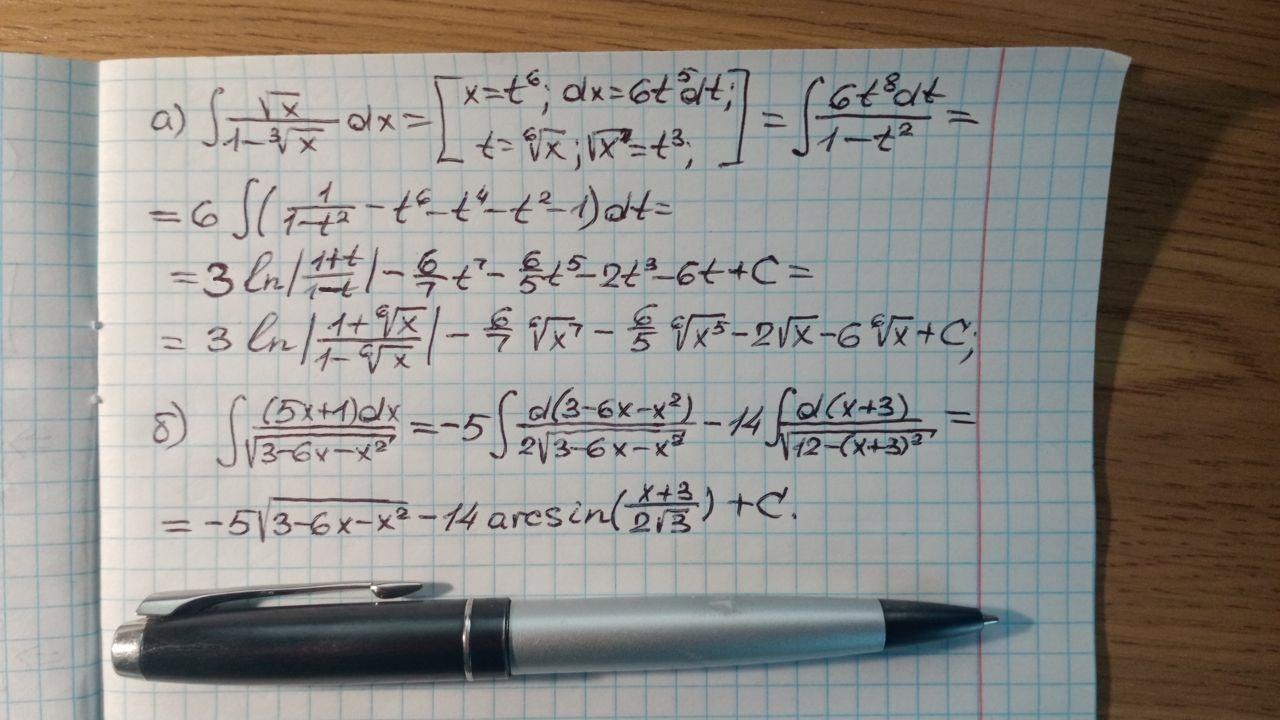 а) ∫ √x / (1-∛x) dx = [x=t⁶; dx=6t⁵dt; t=⁶√x; √x=t³;] = ∫ 6t⁸dt / (1-t²) =
= 6 ∫ (1/(1-t²) - t⁶ - t⁴ - t² - 1) dt =
= 3 ln|(1+t)/(1-t)| - 6/7 t⁷ - 6/5 t⁵ - 2t³ - 6t + C =
= 3 ln|(1+⁶√x)/(1-⁶√x)| - 6/7 ⁶√x⁷ - 6/5 ⁶√x⁵ - 2√x - 6 ⁶√x + C;
б) ∫ (5x+1)dx / √(3-6x-x²) = -5 ∫ d(3-6x-x²) / (2√(3-6x-x²)) - 14 ∫ d(x+3) / √(12-(x+3)²) =
= -5√(3-6x-x²) - 14 arcsin((x+3)/(2√3)) + C.